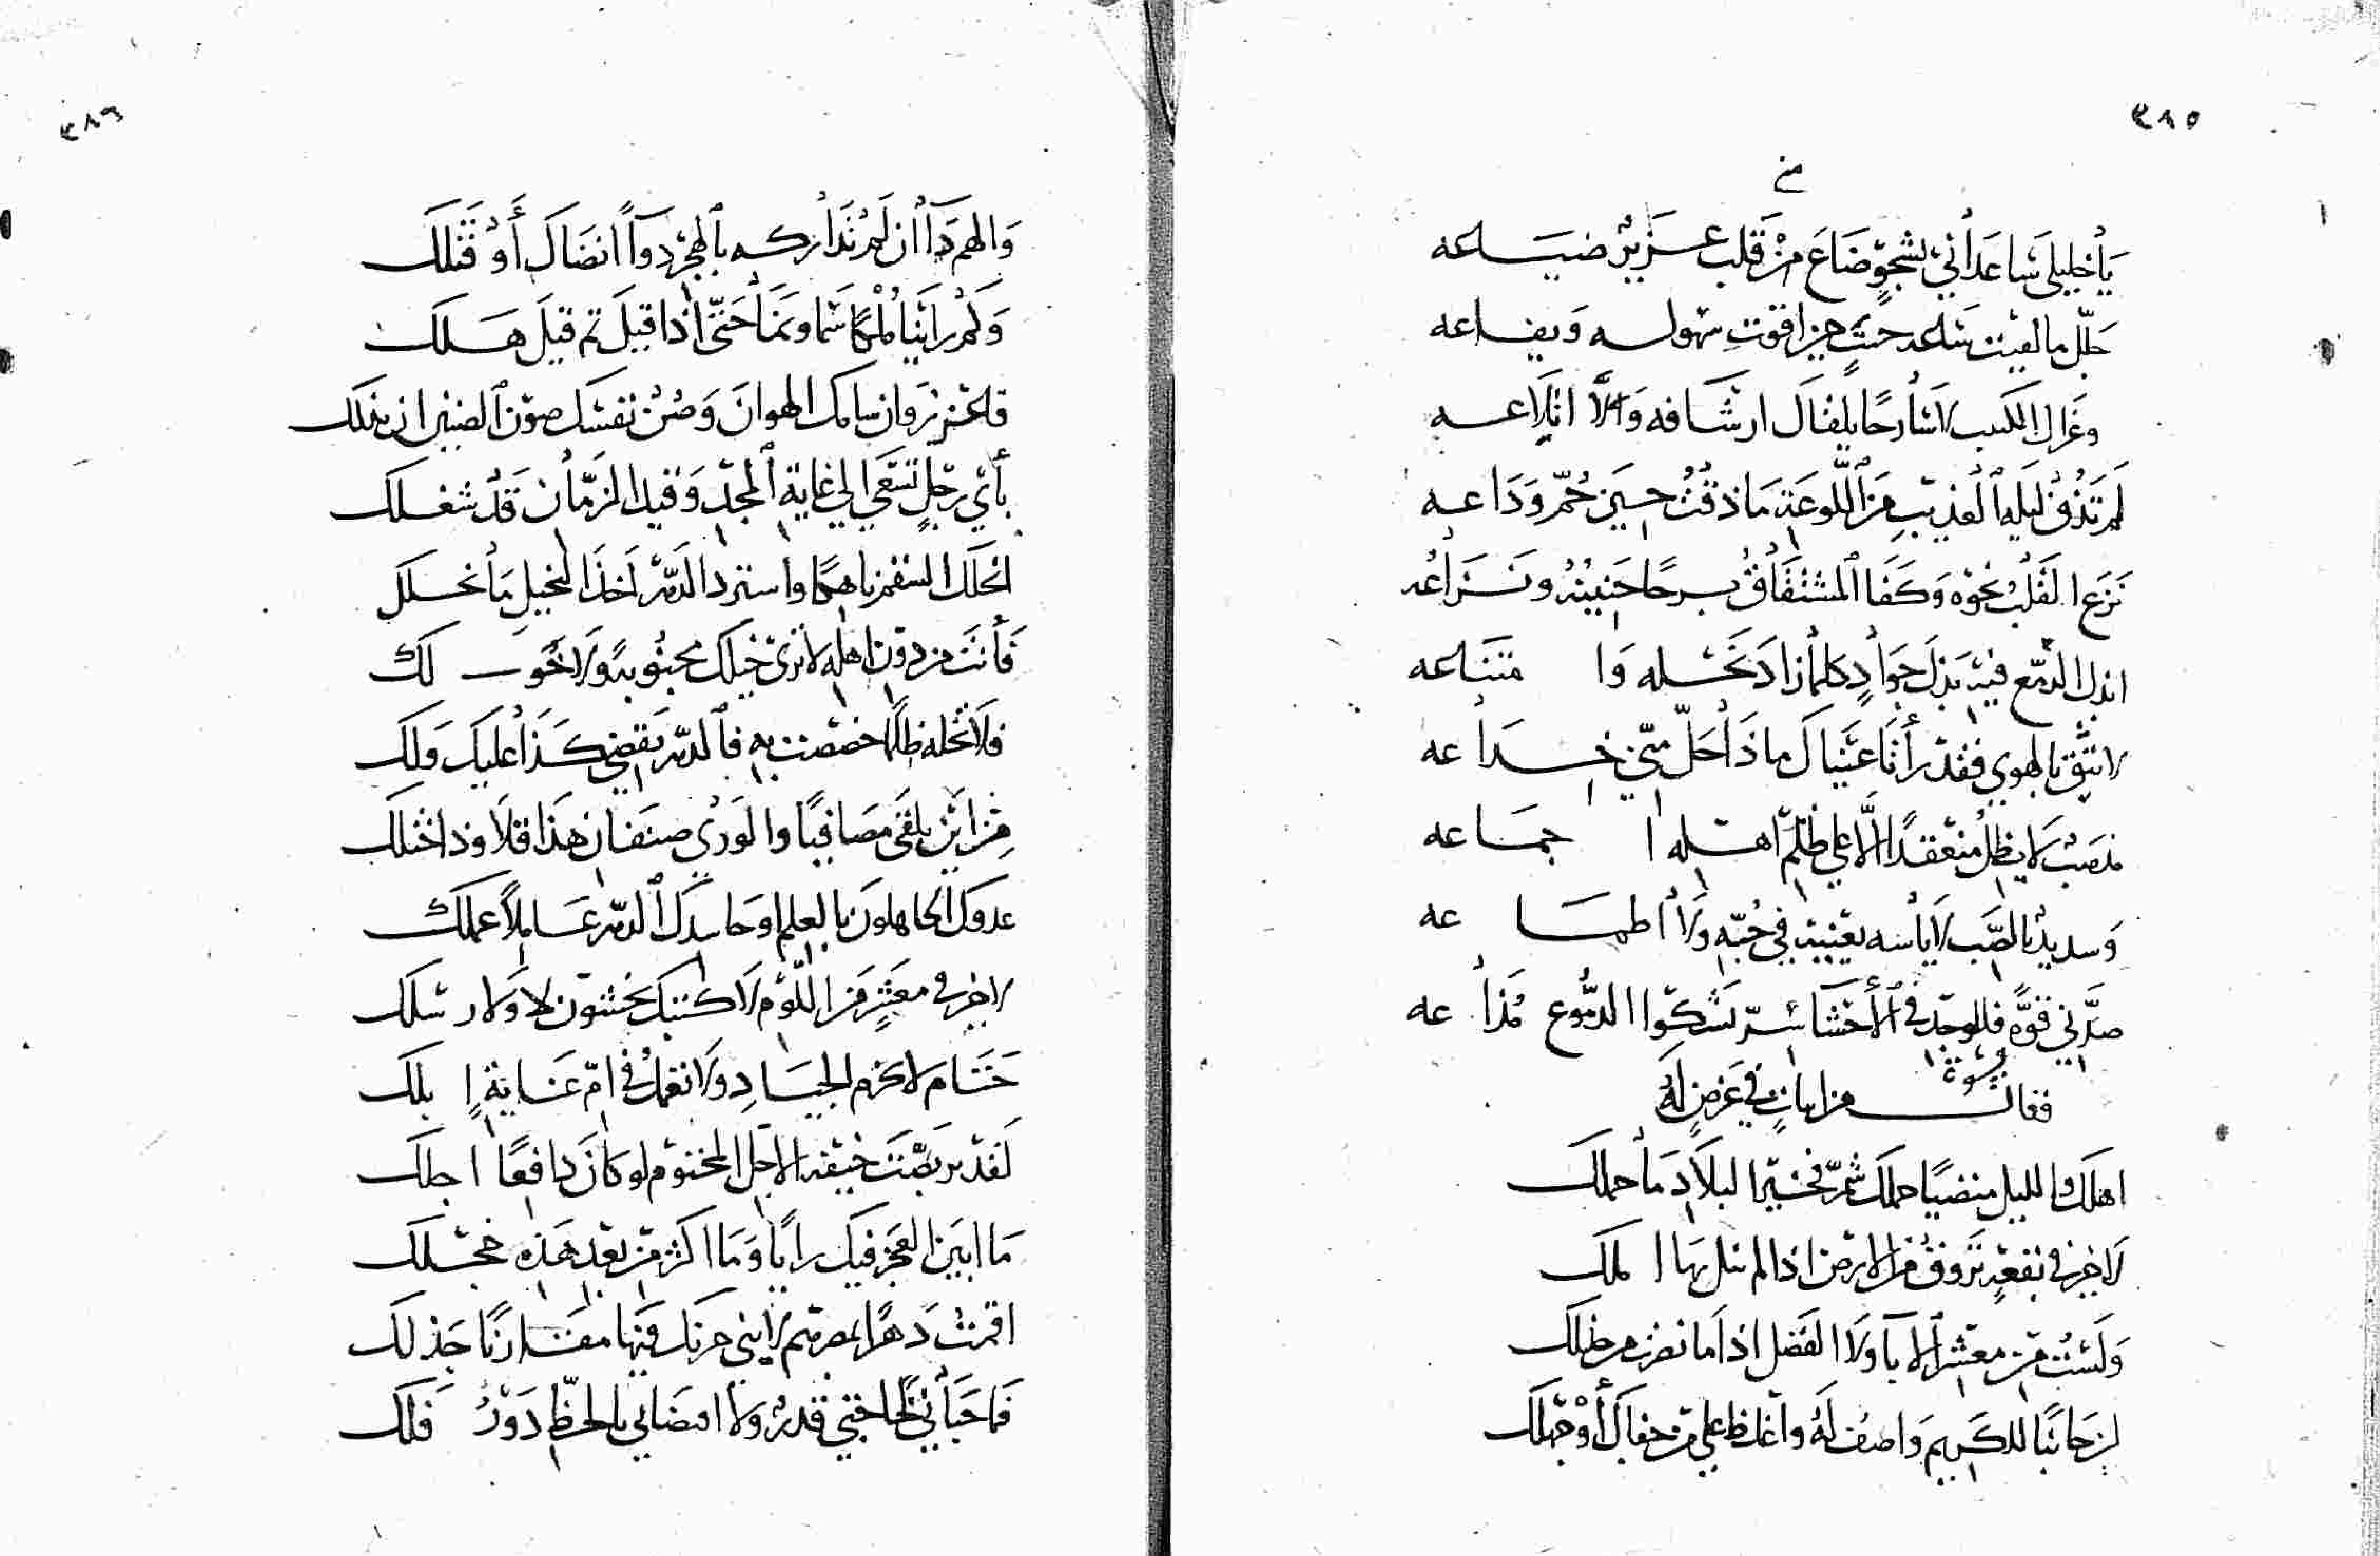 ٣٨٥
يا خليلي ساعداني بشجو ضاع من قلب عزيز ضياعه
وغزال الكثيب لا سارحا يلفا ل ارشافه ولا اتلاعه
لم تذق ليلة العذيب من اللوعة ما ذقت حين حم وداعه
نزع القلب نحوه وكفا المشتاق برحا حنينه ونزاعه
ابذل الدمع فيه بذل جواد كلما زاد وا متناعه
لا تثق بالهوي فقد رأتا عيناك ماذا احل مني خداعه
لا يظل منعقدا الا علي ظلم اهله ا جماعه
بالصب لا ياسه يغنيه في حبه ولا اطما عه
قوة فللوجد في الأحشا سر تشكوا الدموع مذا عه
فقال من ابيات في غرض له
اهلك والليل منضيا جملك شمر فخير البلاد ما حملك
لاخير في بقعة تروق من الارض اذا لم تنل بها املك
ولست من معشر الابآ ولا الفضل اذا ما نفرت من
لن جانبا للكريم واصف له واغلظ علي من جفاك أو جهلك
٣٨٦
والهم دآ ان لم تداركه بالهجر دوآ انضاك أو قتلك
وكم راينا ملكا سما ونما حتي اذا قيل تم قيل هلك
فاعزز وان سامك الهوان وصن نفسك صون الضنين ان بذلك
بأي رجل تسعي الي غاية المجد وقيد الزمان قد شغلك
انحلك السقم ناهكا واسترد الدهر اخذ البخيل ما نحلك
فأنت من دون اهله لا تري خيلك محبوبة ولا خو لك
فلا تخله ظلما خصصت به فالدهر يقضي كذا عليك ولك
من اين يلقي مصافيا والوري صنفان هذا قلا وذا ختلك
عدوك الجاهلون بالعلم او حاسدك الدهر عاملا عملك
لاخير في معشر من اللوم لا كتبك يخشون لا ولا رسلك
حتام لا تحزم الجياد ولا تعمل في ام غاية ابلك
لقد تربصت خيفة الاجل المحتوم لو كان دافعا اجلك
ما ابين العجز فيك رايا وما اكثر من بعد هذه خجلك
اقمت دهرا بمصرهم لا يني حزنك فيها مقارنا جذلك
فما حباني قدر ولا امضاني بالحظ دور فلك